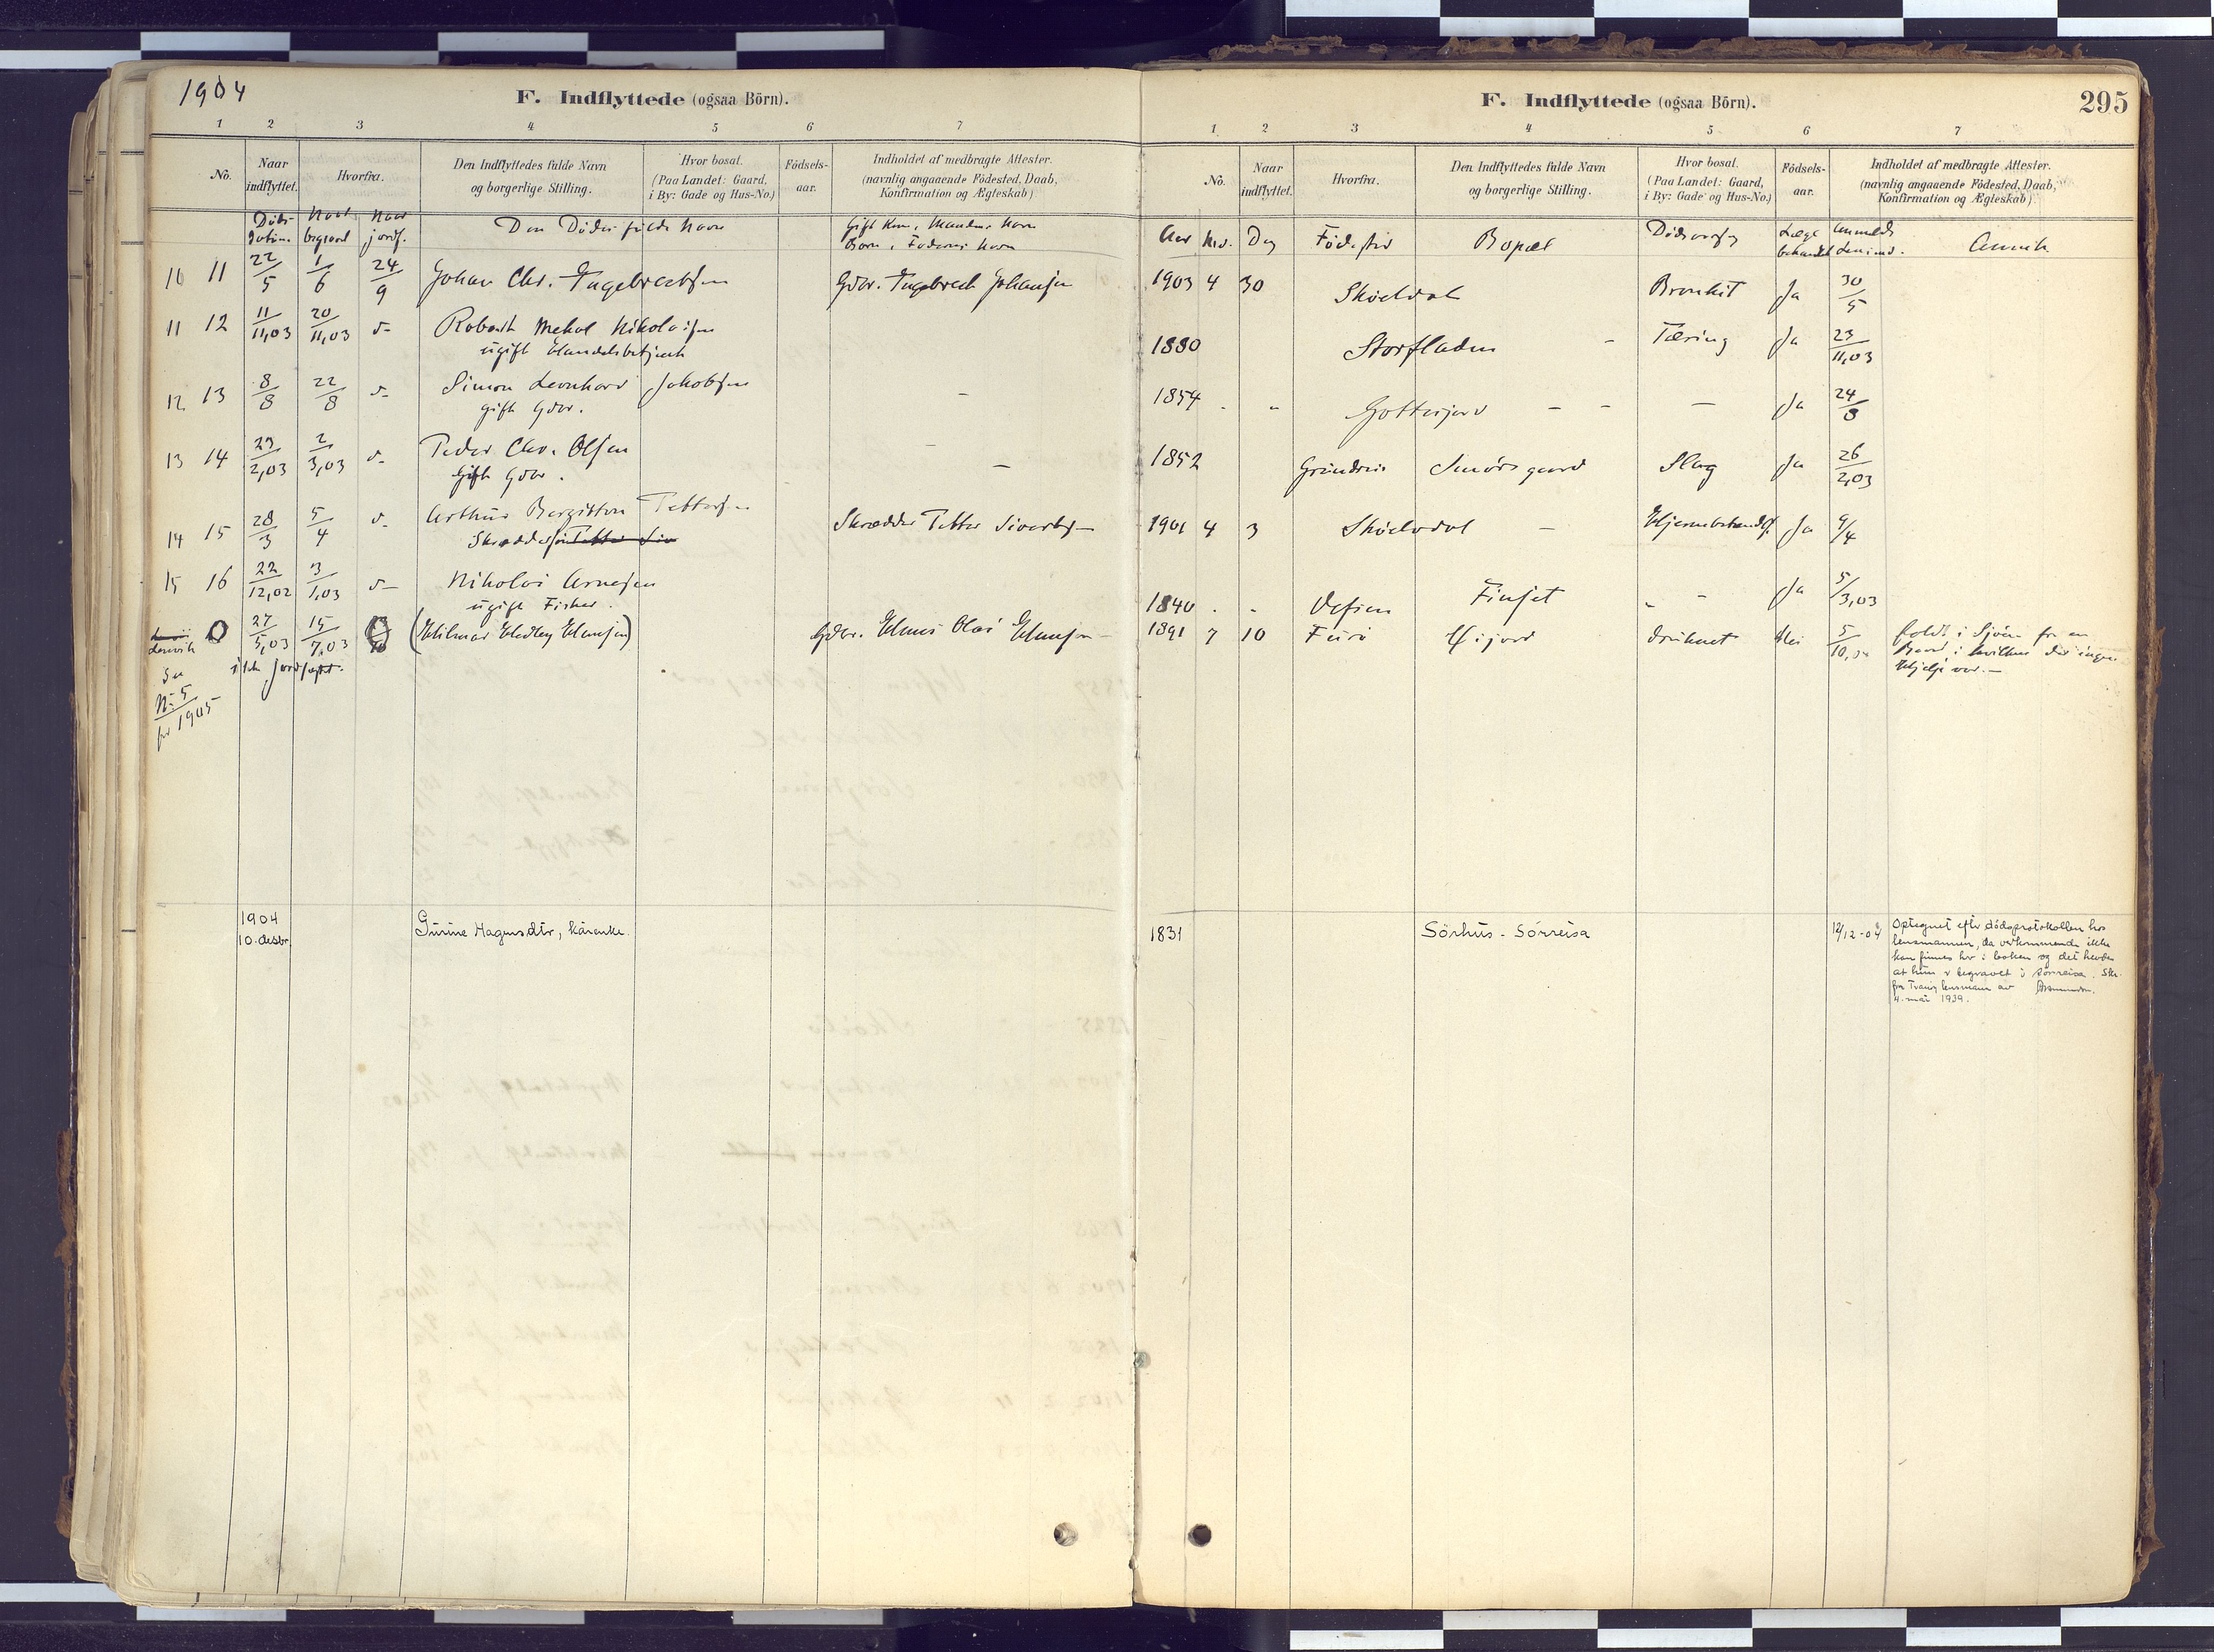 1904
F. Indflyttede (ogsaa Börn).
1 2 3 4 5 6 7
No.
Naar indflyttet.
Hvorfra.
Den Indflyttedes fulde Navn
og borgerlige Stilling.
Hvor bosat.
(Paa Landet: Gaard,
i By: Gade og Hus-No.)
Födsels-
aar.
Indholdet af medbragte Attester.
(navnlig angaaende Födested, Daab,
Konfirmation og Ægteskab)
Döds-
datum.
Naar
begravet
Naar
jordf.
Den Dödes fulde Navn
Gift Kone, Mandens Navn
Barn, Faderens Navn
10 11 22/5 1/6 24/9 Johan Chr. Ingebregtsen Gdbr. Ingebregt Johansen
11 12 11/11,03 20/11,03 d- Robert Mekal Nikolaisen
ugift Handelsbetjent
12 13 8/8 22/8 d- Simon Leonhard Jakobsen -
gift Gdbr.
13 14 23/2,03 2/3,03 d- Peder Chr. Olsen -
Gift Gdbr. -
14 15 28/3 5/4 d- Arthur Bergitton Tettersen Skrædder Tetter Sivertsen
Skrædders
15 16 22/12,02 3/1,03 d- Nikolai Arnesen
ugift Fisker.
Lenvik 0 27/5,03 15/7,03 (Hilmar Hedley Hansen) Gdbr. Hans Olai Hansen
Se ikke jordfæstet.
No 5
for 1905
1904
10. desbr. Gurine Hagensdtr, kårenke.
F. Indflyttede (ogsaa Börn).
295
1 2 3 4 5 6 7
No.
Naar
indflyttet.
Hvorfra.
Den Indflyttedes fulde Navn
og borgerlige Stilling.
Hvor bosat.
(Paa Landet: Gaard,
i By: Gade og Hus-No.)
Födsels-
aar.
Indholdet af medbragte Attester.
(navnlig angaaende Födested, Daab,
Konfirmation og Ægteskab)
Aar Md. Dag Födested Bopæl Dödsaarsag Læge
behandlet Anmeldt
Lensmd. Anmk.
1903 4 30 Sköelvdal Bronkit Ja 30/5
1880 Storfladen - Tæring Ja 23/11,03
1854 - " Gottesjord - - - Ja 24/8
1852 Smörsgaard Slag Ja 26/2,03
1901 4 3 Sköelvdal - Hjernebetændelse Ja 9/4
1840 - - Vefsen Finset " - Ja 5/3,03
1891 7 10 druknet Nei 5/10,03 faldt i Sjöen fra en
Baad i hvilken der ingen
Hjelp var. -
1831 Sörhus - Sörreisa 12/12-04 Optegnet efter dödsprotokollen hos
lensmannen, da vedkommende ikke
kan finnes her i boken og det hevdes
at hun er begravet i Sörreisa. Skr.
fra Tranöy lensmann av
4. mai 1939.